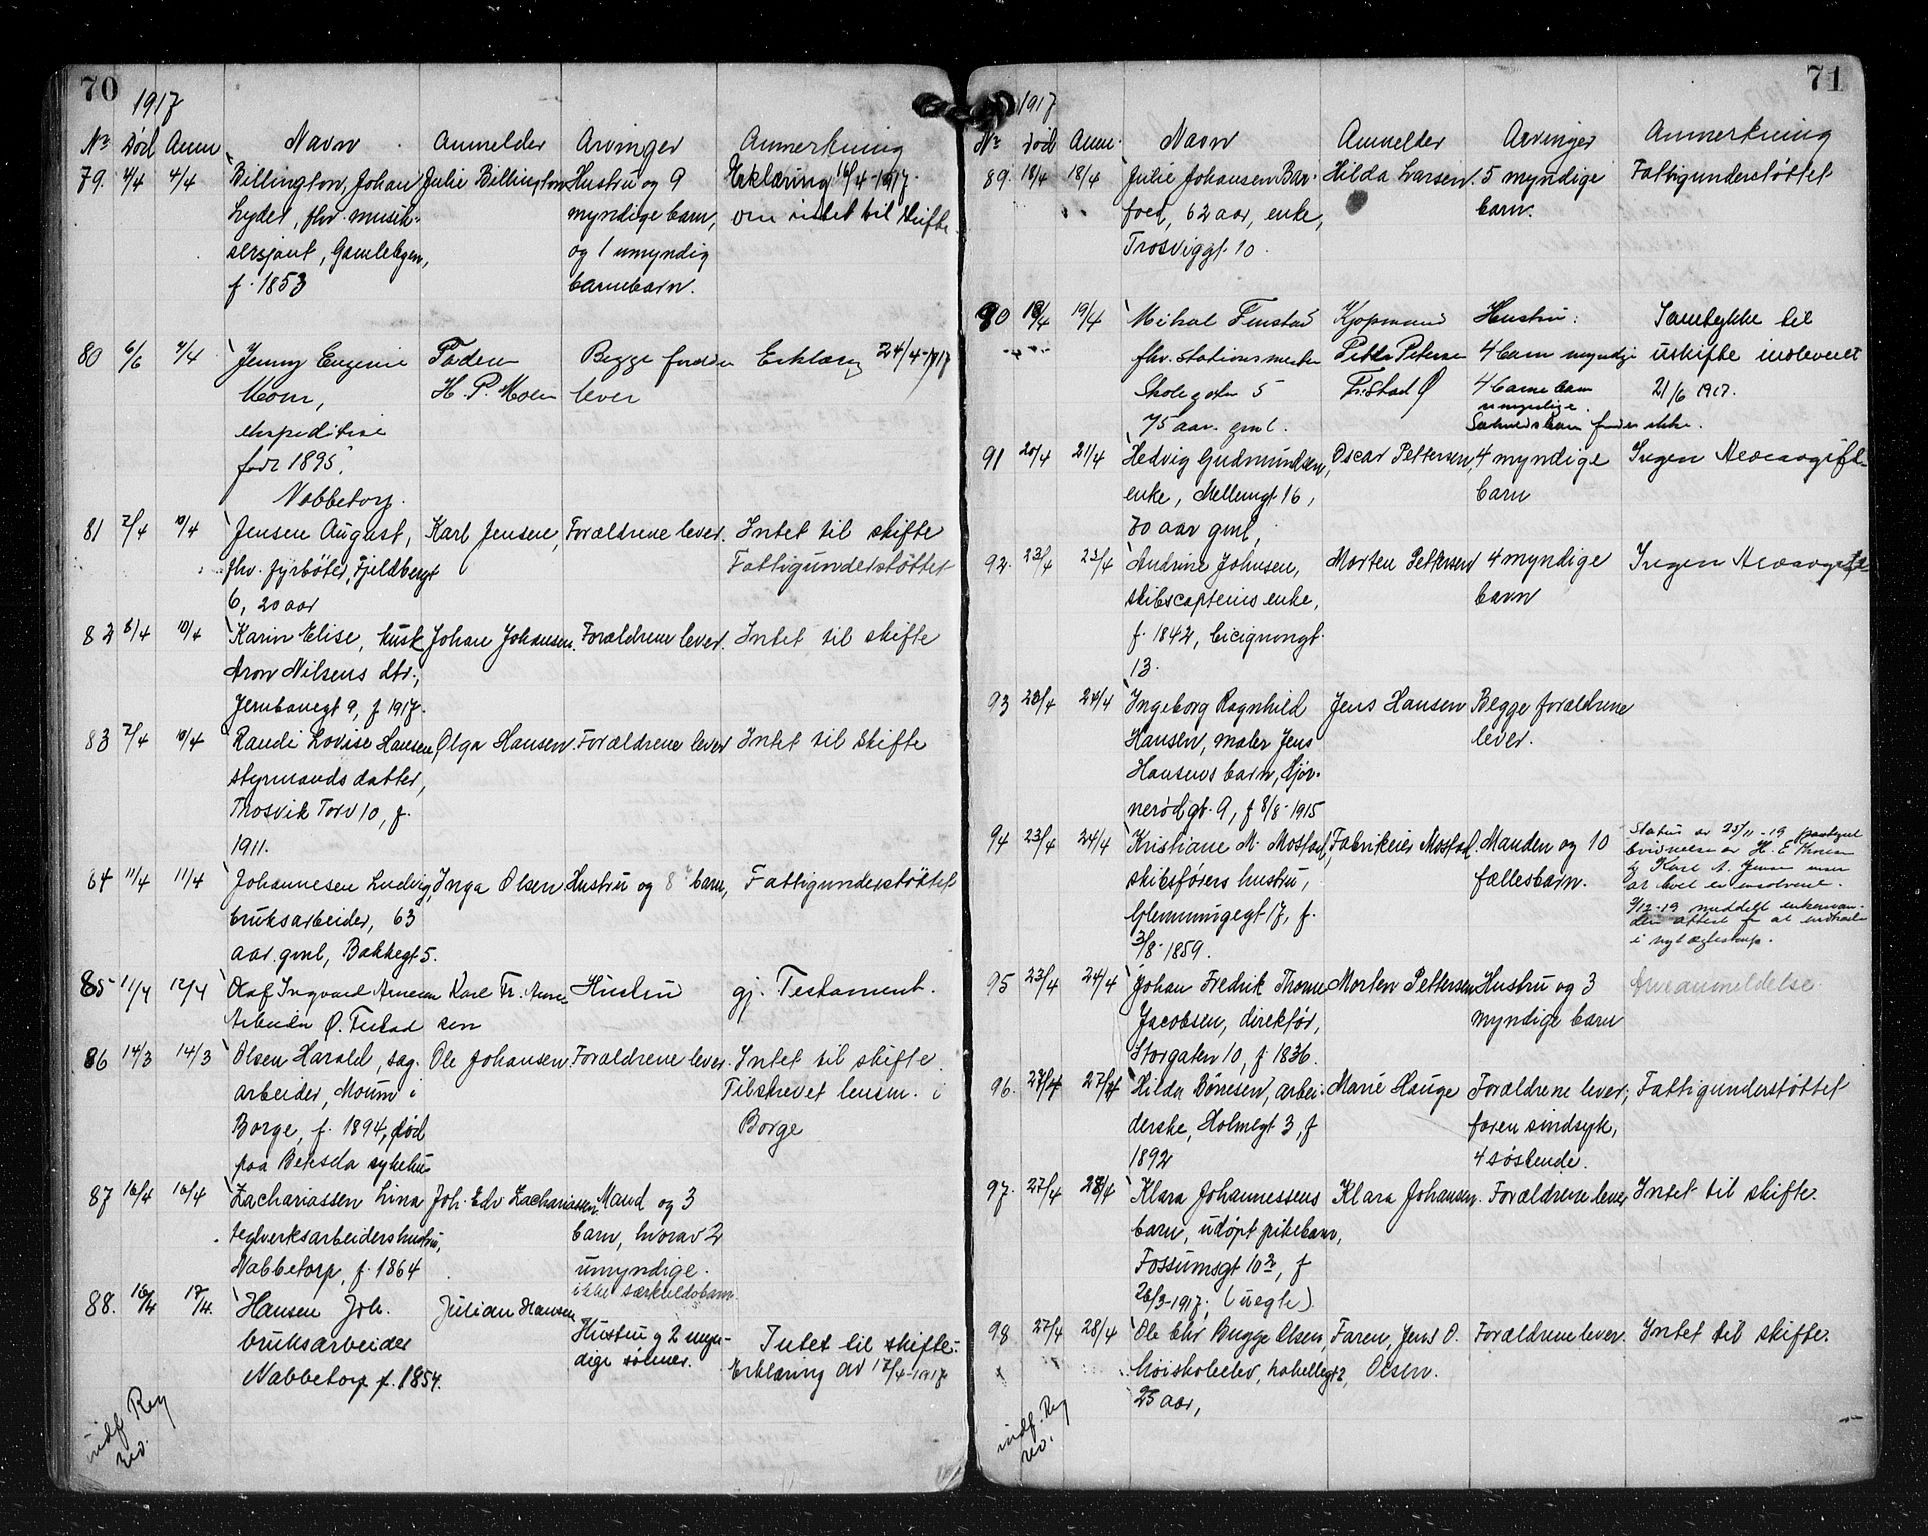 70
1917
Nr Død Anm Navn Anmelder Arvinger Anmerkning
79. 4/4 4/4 Billington, Johan Julie Billington Hustru og 9 Erklæring 16/4-1917.
Lyder, fhv. musik- myndige barn, om intet til skifte.
sersjant, Gamlebyen, og 1 umyndig
f. 1853 barnebarn.
80 6/6 7/4 Jenny Eugenie Faderen Begge foreldre Erklæring 24/4-1917
Moen, H. P. Moen lever
ekspeditrise
født 1895,
Nabbetorp.
81 7/4 10/4 Jensen August, Karl Jensen, Forældrene lever. Intet til skifte
fhv. fyrbøter, Fjeldbergt Fattigunderstøttet
6, 20 aar
82 8/4 10/4 Karin Elise, kusk Johan Johansen. Forældrene lever. Intet til skifte
Aron Nilsens dtr.,
Jernbanegt 9, f 1917.
83 7/4 10/4 Randi Lovise Hansen Olga Hansen. Forældrene lever Intet til skifte
styrmands datter,
Trosvik Torv 10, f.
1911.
84 11/4 11/4 Johannesen Ludvig, Inga Olsen Hustru og 8 barn, Fattigunderstøttet
bruksarbeider, 63
aar gml, Bakkegt 5.
85 11/4 12/4 Olaf Ingvard Arnesen Karl Fr. Arne- Hustru gj. Testament.
Arbeider Ø. Fr.stad sen
86 14/3 14/3 Olsen Harald, sag- Ole Johansen. Forældrene lever. Intet til skifte.
arbeider, Moum i Tilskrevet lensm. i
Borge, f. 1894, død Borge
paa Betesda sykehus
87 16/4 16/4 Zachariassen Lina Joh. Edv Zachariassen. Mand og 3
teglverksarbeidershustru, barn, hvorav 2
Nabbetorp, f. 1864 umyndige.
ikke særkuldsbarn.
88. 16/4 17/4. Hansen Joh. Julian Hansen
bruksarbeider Hustru og 2 myn- Intet til skifte.
Nabbetorp f. 1854. dige sønner. Erklæring av 17/4-1917
indf. Reg
71
1917
Nr Død Anm. Navn Anmelder Arvinger Anmerkning
89. 18/4 18/4 Julie Johansen Bar- Hilda Larsen. 5 myndige Fattigunderstøttet
foed, 62 aar, enke, barn.
Trosviggt. 10.
90 18/4 19/4 Mikal Finstad Kjøpmand Hustru. Samtykke til
fhv. stationsmester Petter Petersen 4 barn myndige uskifte indleveret
Skolegaten 5 Fr.stad Ø 4 barnebarn 21/6 1917.
75 aar gml. umyndige.
Særkuldsbarn findes ikke.
91 20/4 21/4 Hedvig Gudmundsen, Oscar Pettersen, 4 myndige Ingen Arveavgift
enke, Mellumgt 16, barn
70 aar gml,
92. 23/4 23/4 Andrine Johnsen, Morten Pettersen 4 myndige Ingen Arveavgift
skibscapteins enke, barn
f. 1842, Cicignongt.
13.
93 23/4 24/4 Ingeborg Ragnhild Jens Hansen Begge forældrene
Hansen, maler Jens lever.
Hansens barn, Kjøv-
nerødgt. 9, f 8/8-1915
94 23/4 24/4 Kristiane M. Mostad, Fabrikeier Mostad. Manden og 10
skibsførers hustru, fællesbarn.
Glemmengegt 17, f.
3/8-1859.
Status av 25/11-19
at boet er insolvent.
9/12-19 meddelt enkeman-
den attest for at indtræde
i nyt ægteskap.
95 23/4 24/4 Johan Fredrik Thorne Morten Pettersen Hustru og 3 Arveanmeldelse.
Jacobsen, direktør, myndige barn
Storgaten 10, f. 1836.
96. 27/4 27/4 Hilda Bønesen, arbei- Marie Hauge Forældrene lever, Fattigunderstøttet
derske, Holmegt 3, f faren sindsyk,
1892 4 søskende.
97. 27/4 27/4 Klara Johannessens Klara Johansen. Forældrene lever Intet til skifte.
barn, udøpt pikebarn,
Fossumsgt 10 2, f
26/3-1917, (uegte)
98 27/4 28/4 Ole Chr Bugge Olsen, Faren, Jens O. Forældrene lever. Intet til skifte.
høiskoleelev, Kapellegt 2, Olsen.
25 aar,
indf. Reg